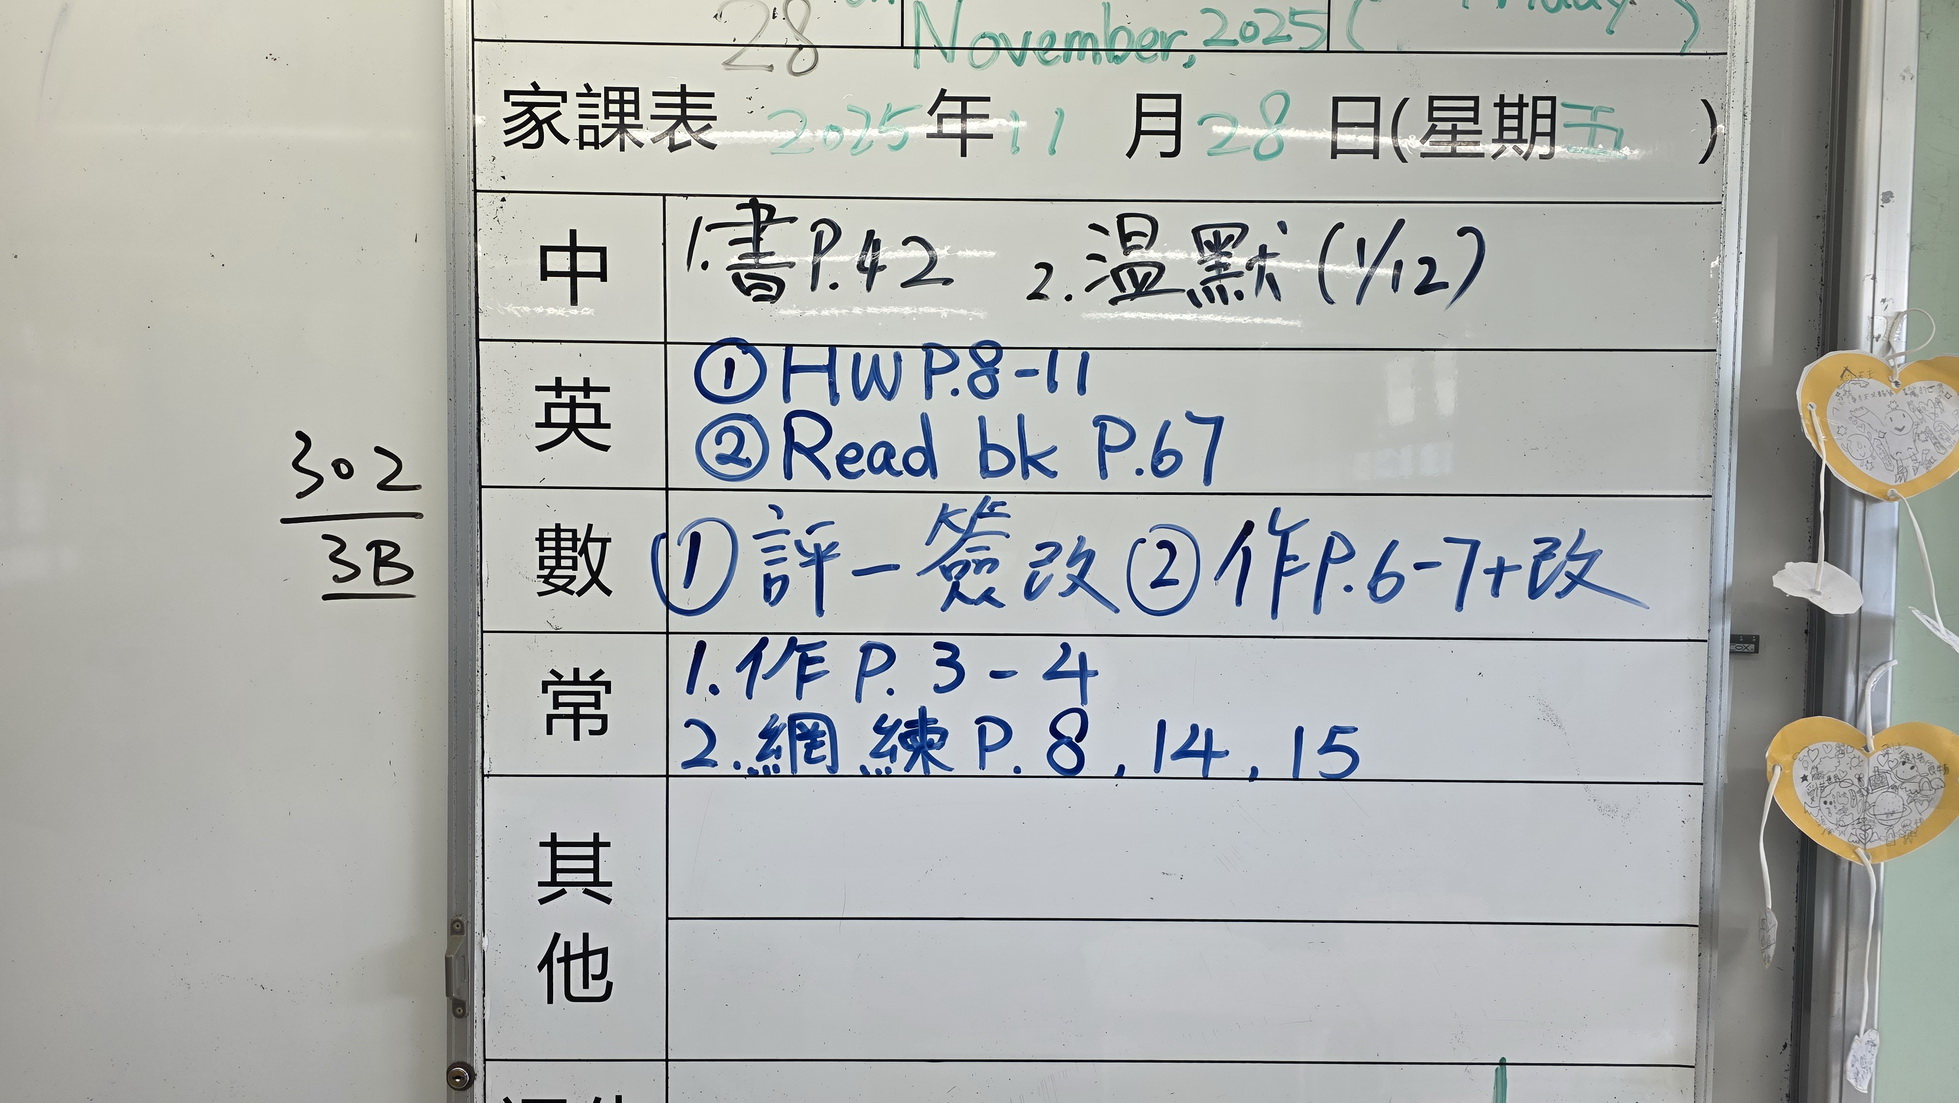 28
November, 2025 (Friday)
家課表 2025年11月28日(星期五)
中 1.書P.42 2.溫默(1/12)
英 ①HW P.8-11
②Read bk P.67
數 ①評一簽改②作P.6-7+改
常 1.作P.3-4
2.網練P.8,14,15
其他
302
3B